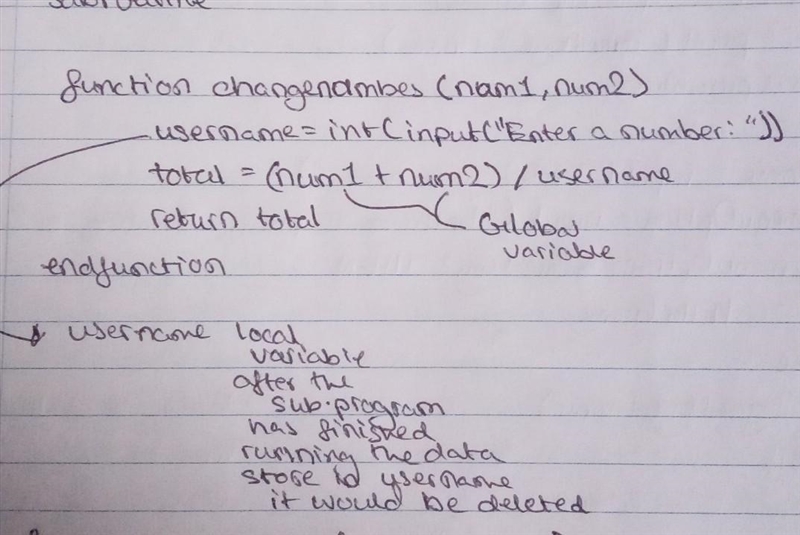 subroutine
function changenambes (num1, num2)
username = int(input("Enter a number: "))
total = (num1 + num2) / username
return total
Global
variable
endfunction
username local
variable
after the
sub.program
has finished
running the data
store id username
it would be deleted